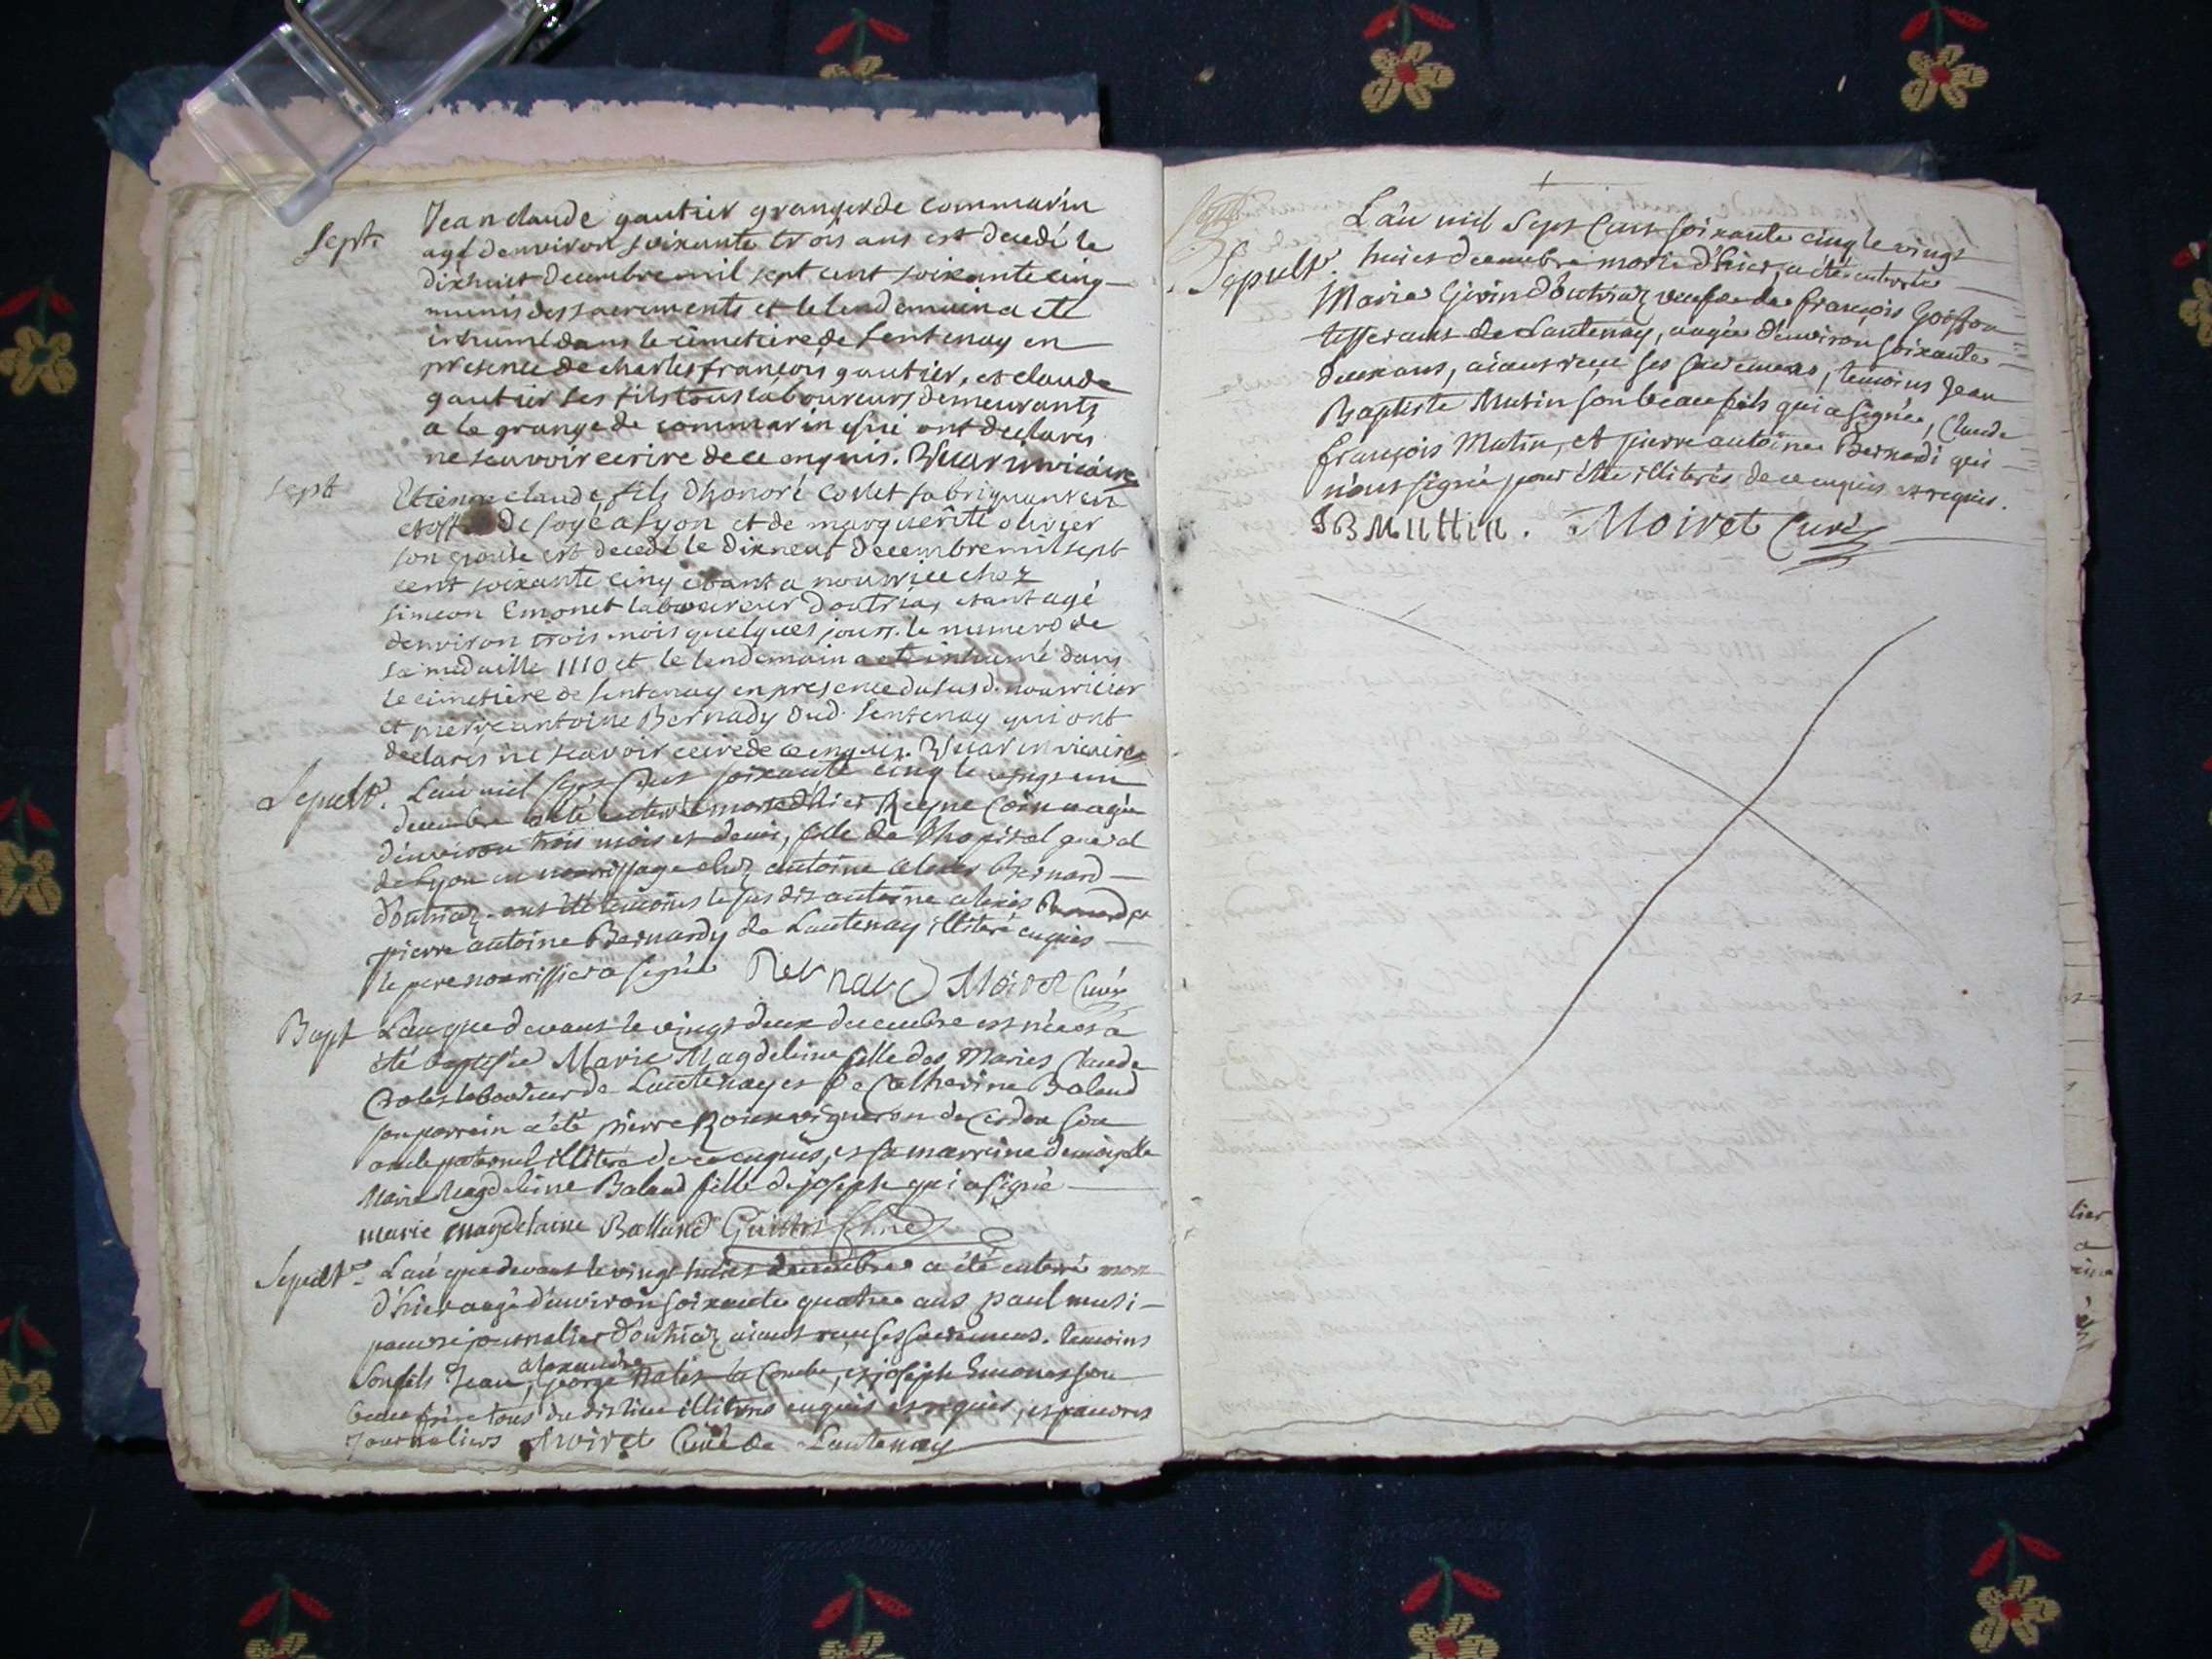 Sept. Jean claude gautier granger de commarin
agé denviron soixante trois ans est decedé le
dixhuit decembre mil sept cent soixante cinq
munis des sacrements et le lendemain a ete
inhumé dans le cimetiere de Lentenay en
presence de charles françois gautier, et claude
gautier ses fils tous laboureurs demeurants
a la grange de commarin qui ont declarés
ne scavoir ecrire de ce enquis. vicaire
Sept Etienne claude, fils dhonoré Collet fabriquant en
etoff de soye a Lyon et de marguerite olivier
son epouse est decedé le dixneuf decembre mil sept
cent soixante cinq etant a nourrice chez
simeon Emonet laboureur doutriaz etant agé
denviron trois mois quelques jours. le numero de
sa medaille 1110 et le lendemain a eté inhumé dans
le cimetiere de Lentenay en presence du susd. nourricier
et pierre antoine Bernady dud. Lentenay qui ont
declarés ne scavoir ecrire de ce enquis. vicaire
Sepultr. L'an mil sept cens soixante cinq le vingt un
decembre a été enterré morte d'hier Reyne agée
d'environ trois mois et demi, fille de l'hopital general
de Lyon en nourrissage chez antoine alexis Bernard
d'outriaz. ont été temoins le sus dit antoine alexis Bernard et
pierre antoine Bernardy de Lantenay illiteré enquis
le pere nourrissier a signé Bernard Moiret Curé
Bapt L'an que devant le vingt deux decembre est née et a
été baptisée Marie Magdeleine fille des Mariés Claude
laboureur de Lantenay et de Catherine Baland
son parrein a été pierre Roux vigneron de Cerdon son
oncle paternel illiteré de ce enquis, et sa marreine demoiselle
Marie Magdeleine Baland fille de joseph qui a signé
marie magdelaine Balland
Sepultr. L'an que devant le vingt huit decembre a été enterré mort
d'hier agé d'environ soixante quatre ans paul
pauvre journalier d'outriaz aiant reçu ses sacremens. temoins
son fils Jean, alexandre george la Combe, et joseph Emonet son
beau frere tous du dit lieu illiterés enquis et requis, et pauvres
Journaliers Moiret Curé de Lantenay
L'an mil sept cens soixante cinq le vingt
Sepultr. huit decembre morte d'hier, a été enterrée
Marie Girin d'outriaz veufve de françois Goiffon
tisserant de Lantenay, agée d'environ soixante
deux ans, aiant reçu ses sacremens, temoins Jean
Baptiste Mutin son beau fils qui a signé, Claude
françois Mutin, et pierre antoine Bernardi qui
n'ont signé pour être illiterés de ce enquis et requis.
JB Muttin. Moiret Curé